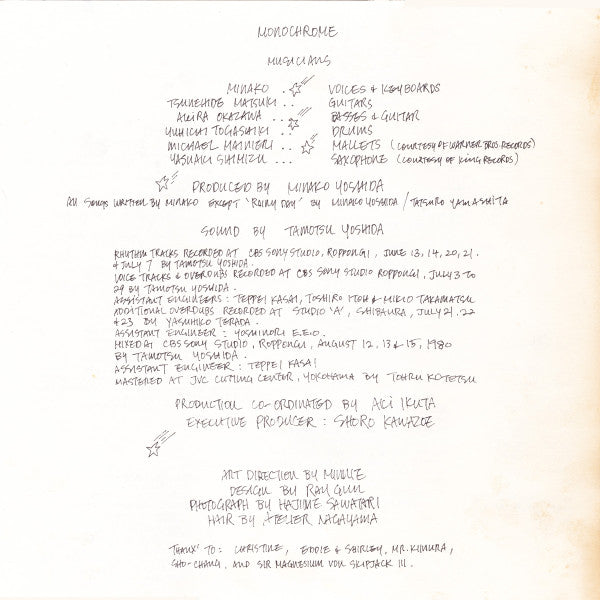 MONOCHROME
MUSICIANS
MINAKO . VOICES & KEYBOARDS
TSUNEHIDE MATSUKI .. GUITARS
AKIRA OKAZAWA ... BASSES & GUITAR
YUHICHI TOGASHIKI . DRUMS
MICHAEL MAINIERI .. MALLETS (COURTESY OF WARNER BROS. RECORDS)
YASUAKI SHIMIZU ... SAXOPHONE (COURTESY OF KING RECORDS)
PRODUCED BY MINAKO YOSHIDA
All SONGS WRITTEN BY MINAKO EXCEPT 'RAINY DAY' BY MINAKO YOSHIDA / TATSURO YAMASHITA
SOUND BY TAMOTSU YOSHIDA
RHYTHM TRACKS RECORDED AT CBS SONY STUDIO, ROPPONGI, JUNE 13, 14, 20, 21.
& JULY 7 BY TAMOTSU YOSHIDA.
VOICE TRACKS & OVERDUBS RECORDED AT CBS SONY STUDIO ROPPONGI, JULY 3 TO
29 BY TAMOTSU YOSHIDA.
ASSISTANT ENGINEERS : TEPPEI KASAI, TOSHIRO ITOH & MIKIO TAKAMATSU
ADDITIONAL OVERDUBS RECORDED AT STUDIO 'A', SHIBAURA, JULY 21. 22
& 23 BY YASUHIKO TERADA.
ASSISTANT ENGINEER : YOSHINORI E.E.O.
MIXED AT CBS SONY STUDIO, ROPPONGI, AUGUST 12, 13 & 15, 1980
BY TAMOTSU YOSHIDA.
ASSISTANT ENGINEER : TEPPEI KASAI
MASTERED AT JVC CUTTING CENTER, YOKOHAMA BY TOHRU KOTETSU
PRODUCTION CO-ORDINATED BY AKI IKUTA
EXECUTIVE PRODUCER : SHORO KAWAZOE
ART DIRECTION BY
DESIGN BY RAY GUN
PHOTOGRAPH BY HAJIME SAWATARI
HAIR BY ATELIER NAGAYAMA
THANX' TO : CHRISTINE, EDDIE & SHIRLEY, MR. KIMURA,
SHO-CHANG, AND SIR MAGNESIUM VON SKIPJACK III.